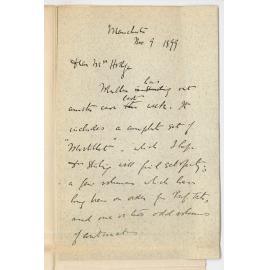 Manchester
Nov 9 1899
Dear Mrs
has
Mullen sending out
last
another case this week. It
includes a complete set of
which I hope
Dr Stirling will find satisfactory;
a few volumes which have
long been on order for Prof Tait,
and one or two odd volumes
of